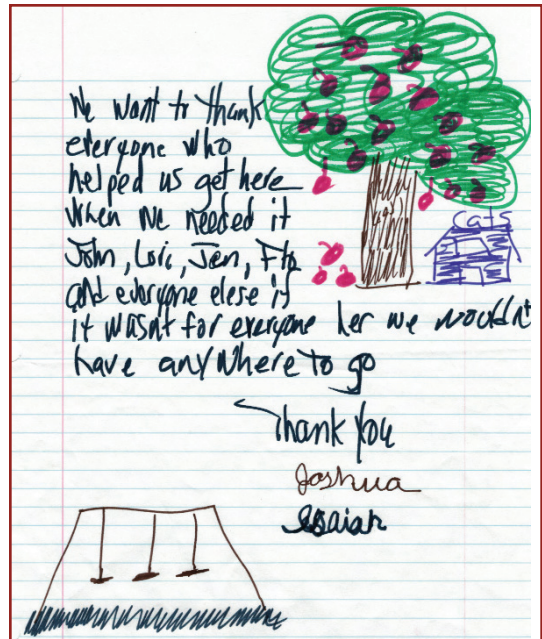 We want to thank
everyone who
helped us get here
when we needed it
John, Lori, Jen, Flo
and everyone elese if
it wasnt for everyone her we wouldnt
have anywhere to go
Thank you
Joshua
Isaiah
cats